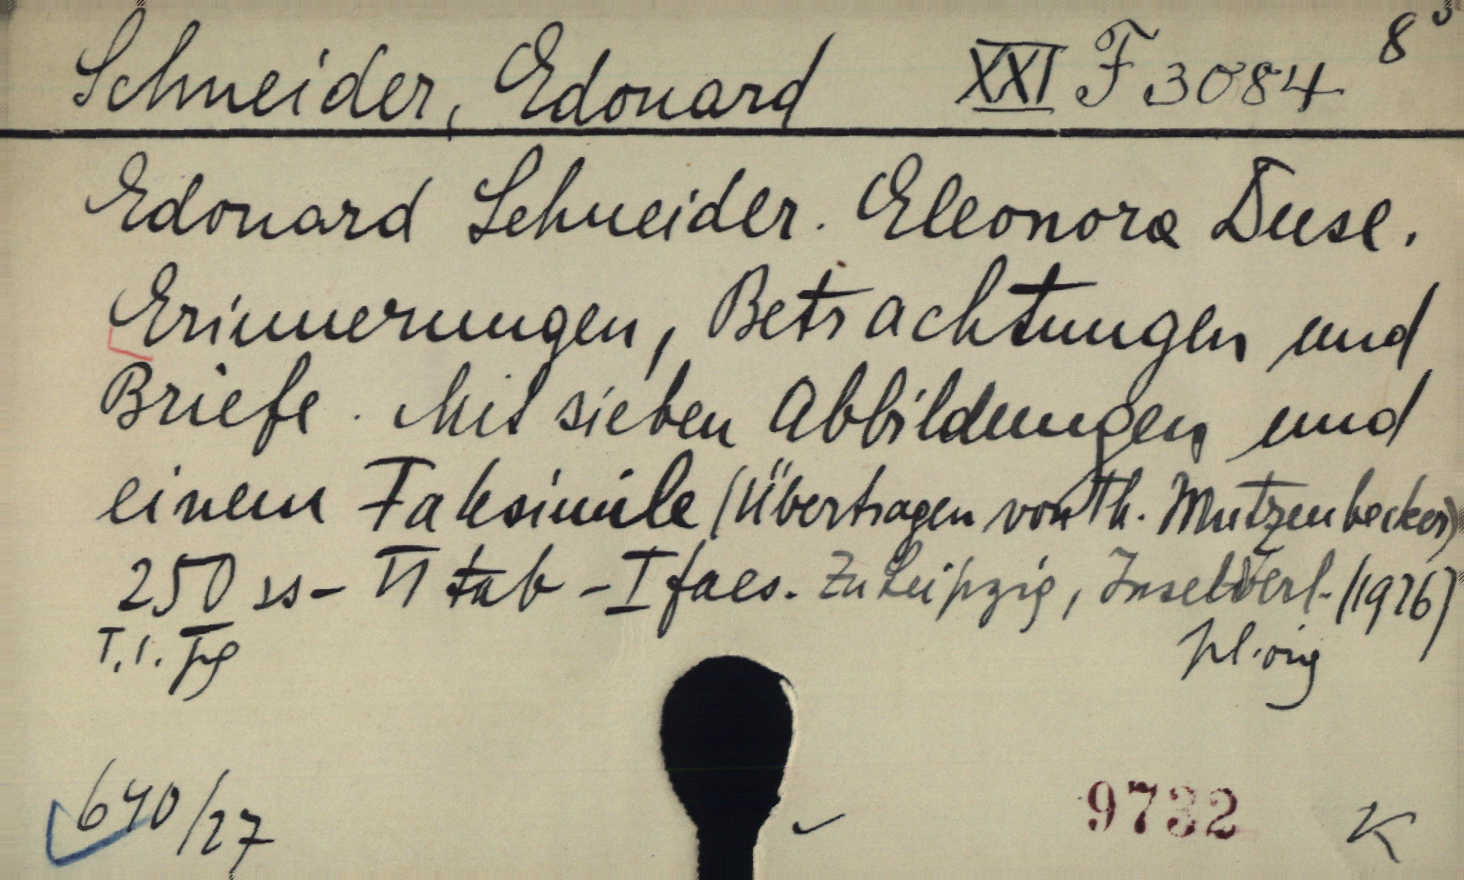 Schneider, Edouard XXI F 3084 8°
Edouard Schneider. Eleonora Duse.
Erinnerungen, Betrachtungen und
Briefe. Mit sieben Abbildungen und
einem Faksimile (Übertragen von Th. Mutzenbecher)
250 ss - VI tab - I facs. Zu Leipzig, Insel Verl. (1926)
pl. orig
640/27
9732 K